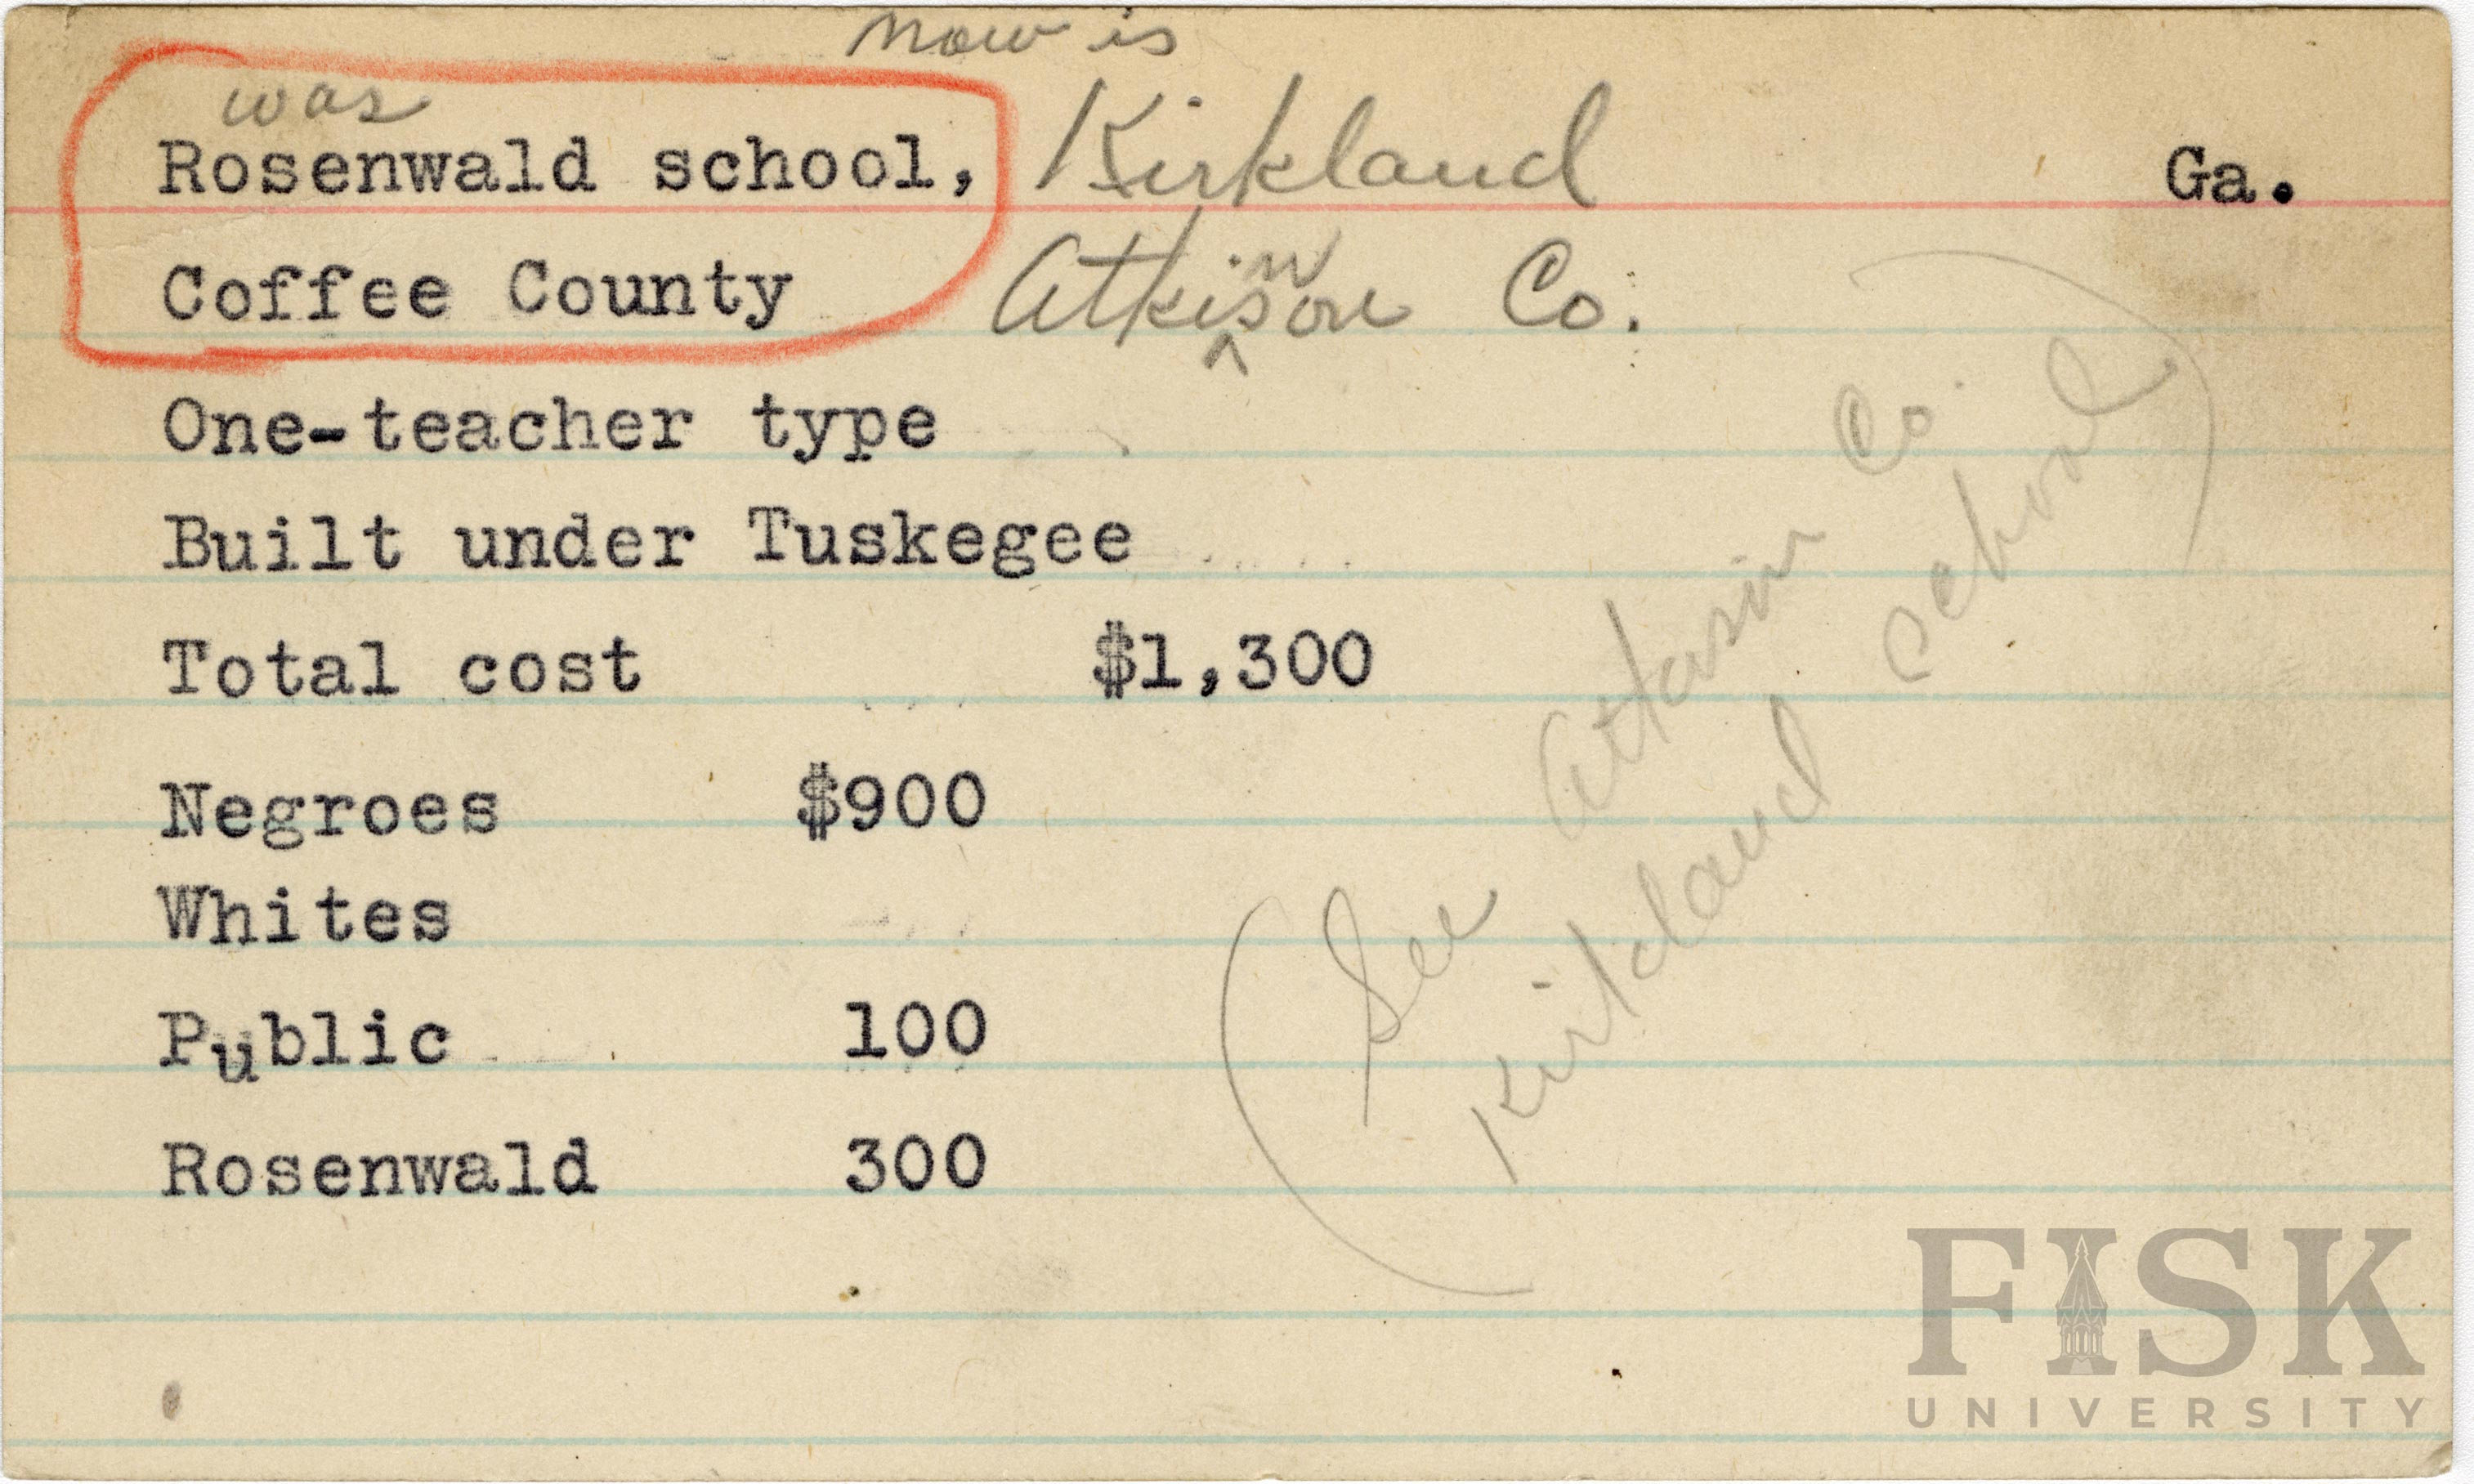 now is
was
Rosenwald school, Kirkland Ga.
Coffee County Atkinson Co.
One-teacher type
Built under Tuskegee
Total cost $1,300
Negroes $900
Whites
Public 100
Rosenwald 300
(See Atkasin Co.
Kirkland School)
FISK
UNIVERSITY